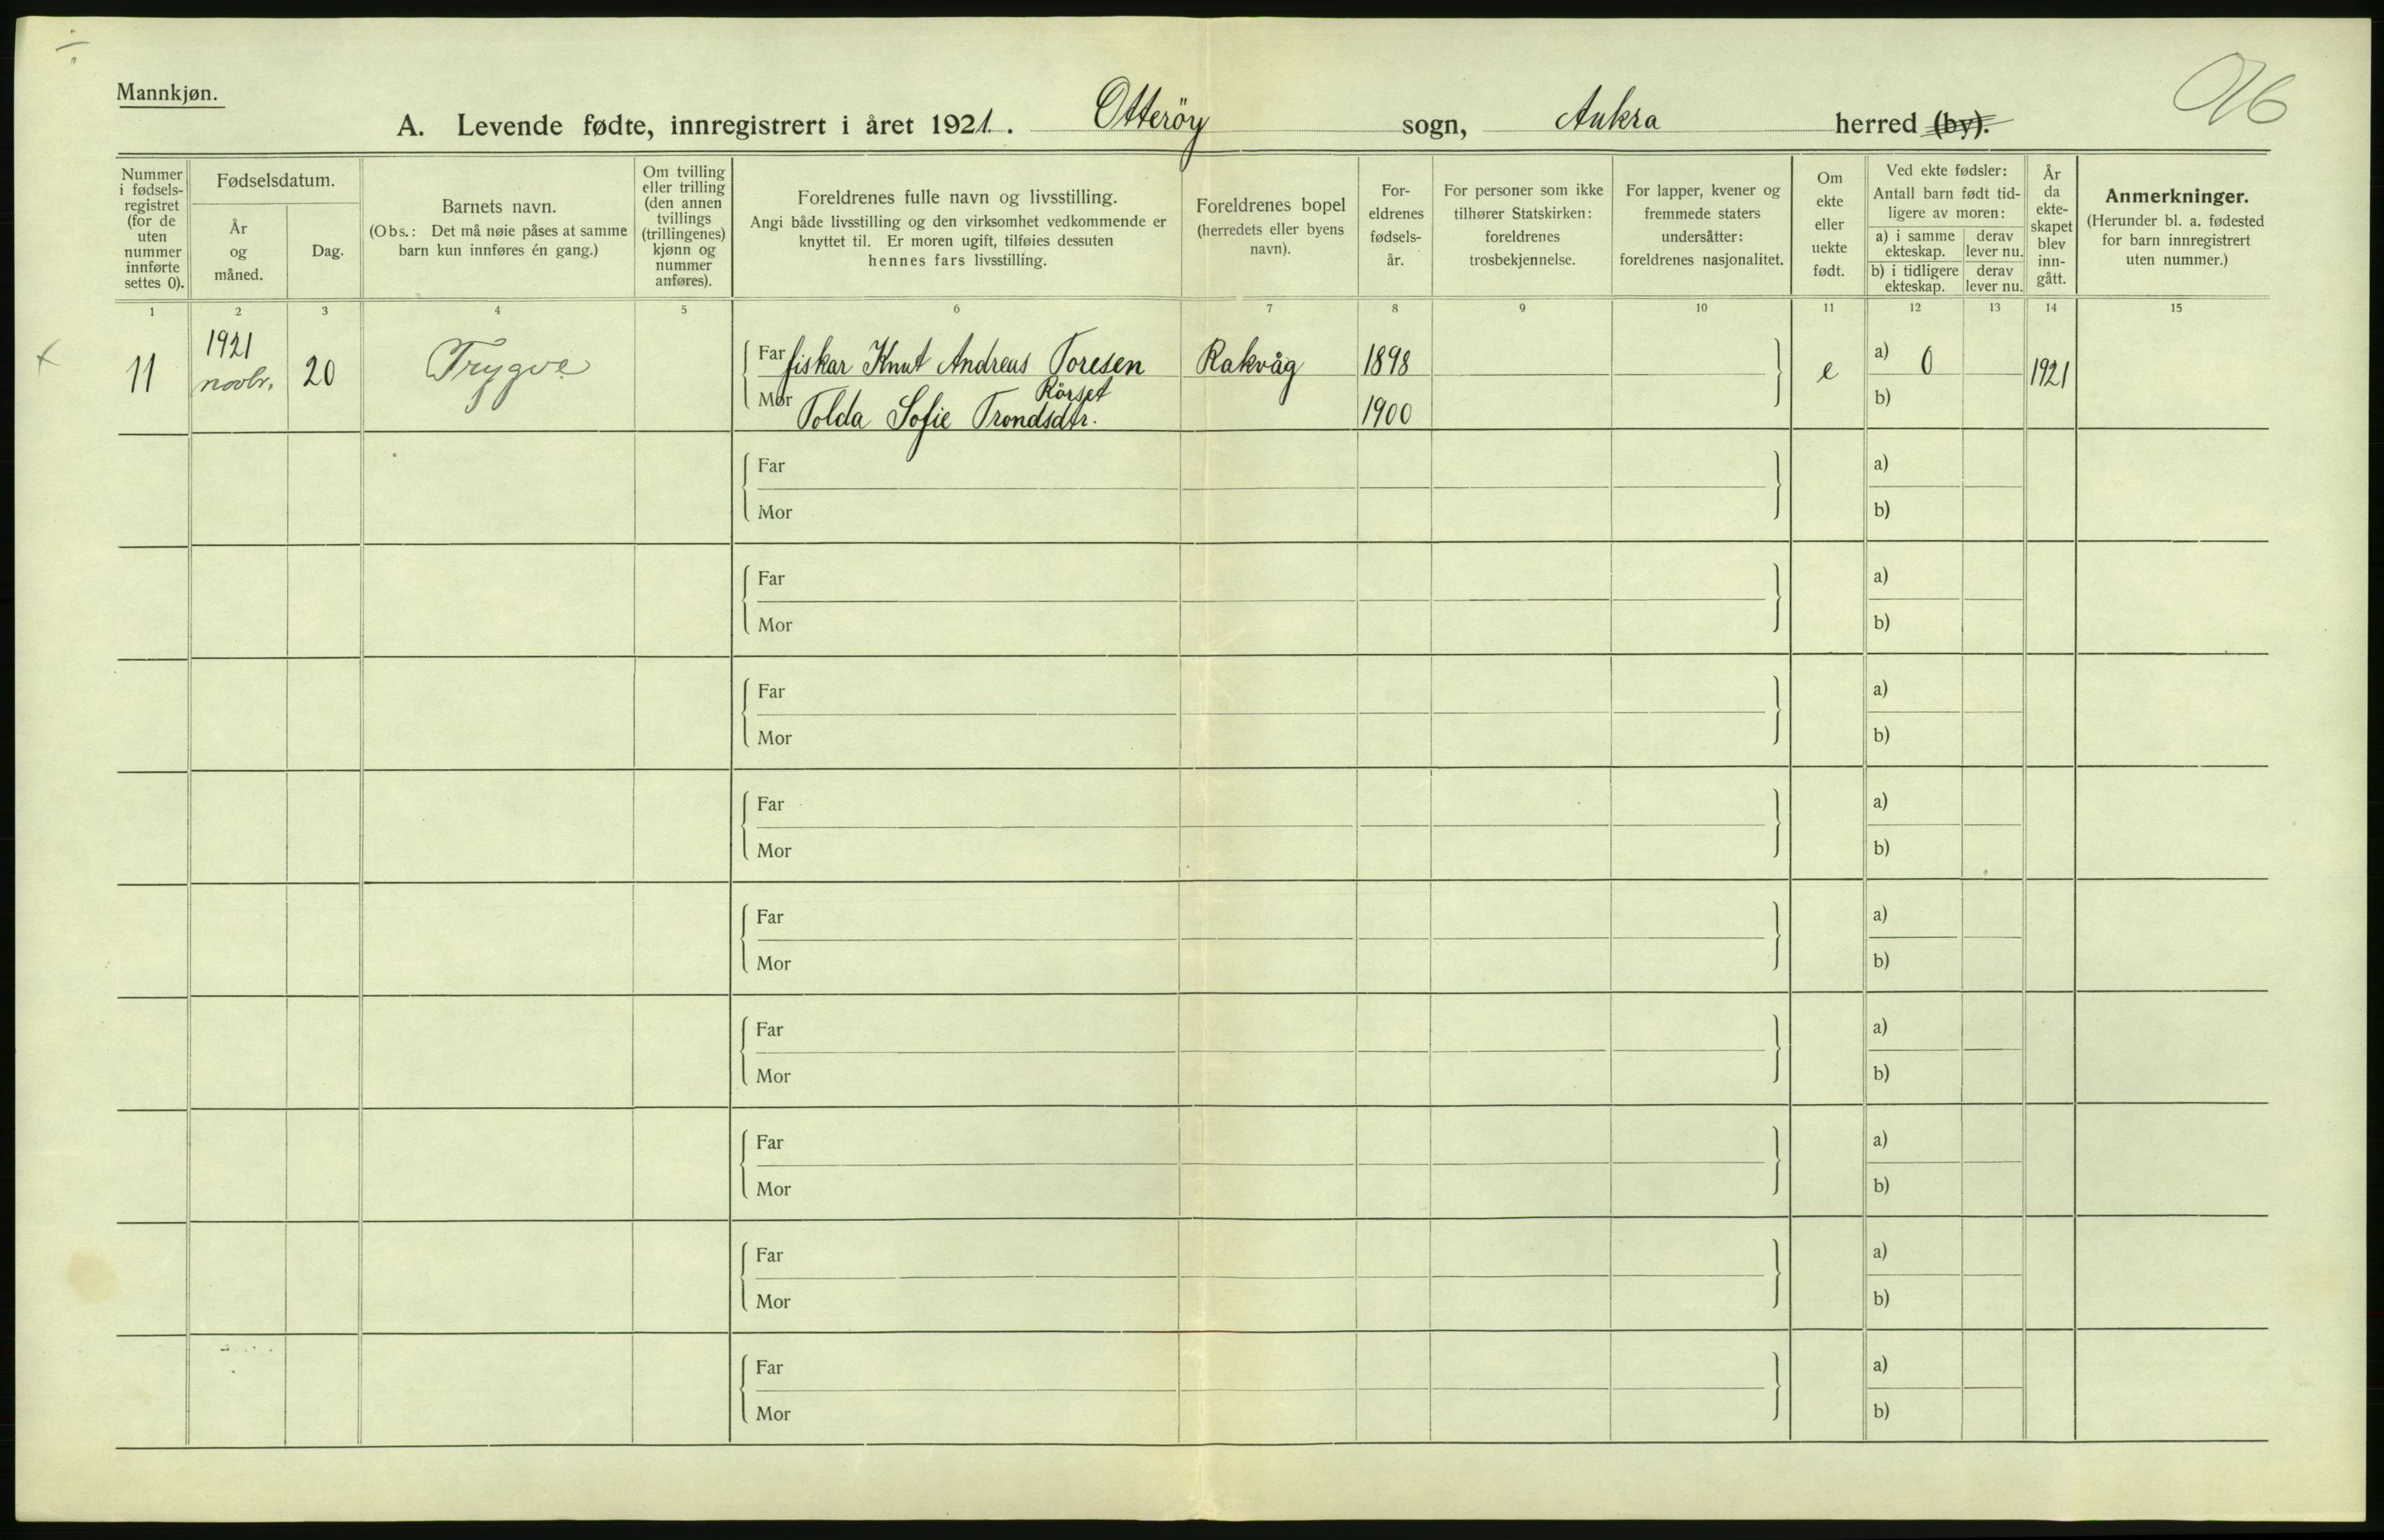 Mannkjøn.
A. Levende fødte, innregistrert i året 1921. Otterøy sogn, Aukra herred (by).
Nummer i fødsels-registret (for de uten nummer innførte settes 0).
Fødselsdatum.
År og måned.
Dag.
Barnets navn.
(Obs.: Det må nøie påses at samme barn kun innføres én gang.)
Om tvilling eller trilling (den annen tvillings (trillingenes) kjønn og nummer anføres).
Foreldrenes fulle navn og livsstilling.
Angi både livsstilling og den virksomhet vedkommende er knyttet til. Er moren ugift, tilføies dessuten hennes fars livsstilling.
Foreldrenes bopel (herredets eller byens navn).
For-eldrenes fødsels-år.
For personer som ikke tilhører Statskirken: foreldrenes trosbekjennelse.
For lapper, kvener og fremmede staters undersåtter: foreldrenes nasjonalitet.
Om ekte eller uekte født.
Ved ekte fødsler:
Antall barn født tid-ligere av moren:
a) i samme ekteskap.
derav lever nu.
b) i tidligere ekteskap.
derav lever nu.
År da ekte-skapet blev inn-gått.
Anmerkninger.
(Herunder bl. a. fødested for barn innregistrert uten nummer.)
1 2 3 4 5 6 7 8 9 10 11 12 13 14 15
11 1921 novbr. 20 Trygve Far fiskar Knut Andreas Toresen Rakvåg 1898 e a) 0 1921
Rörset
Mor Tolda Sofie Trondsdtr. 1900 b)
Far a)
Mor b)
Far a)
Mor b)
Far a)
Mor b)
Far a)
Mor b)
Far a)
Mor b)
Far a)
Mor b)
Far a)
Mor b)
Far a)
Mor b)
Far a)
Mor b)